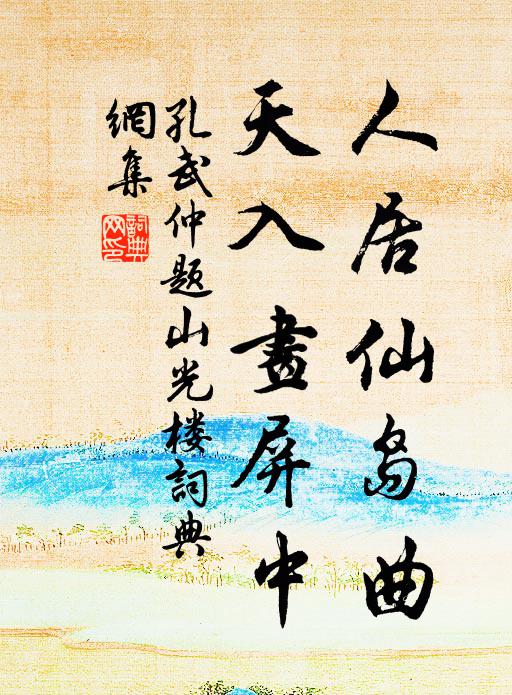 人居仙岛曲
天入畫屏中
孔武仲题山光楼詞典
網集
詞典
网印